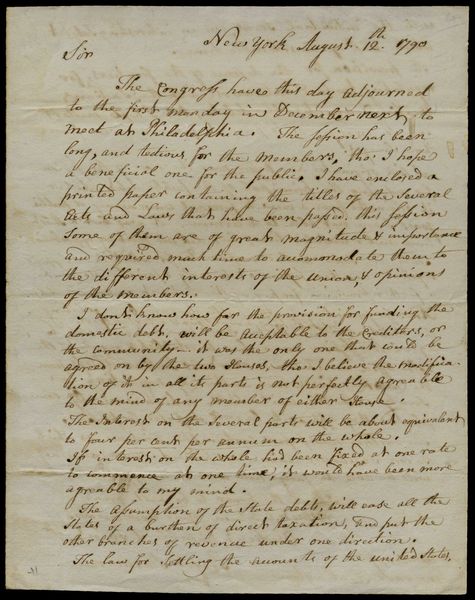 New York August 12th. 1790
Sir
The Congress have this day adjourned
to the first monday in December next, to
meet at Philadelphia. The session has been
long, and tedious for the members, tho' I hope
a beneficial one for the public, I have enclosed a
printed paper containing the titles of the several
Acts and Laws that have been passed this session
Some of them are of great magnitude & importance
and required much time to accomodate them to
the different interests of the union, & opinions
of the members.
I dont know how far the provision for funding the
domestic debt, will be acceptable to the Creditors, or
the community - it was the only one that could be
agreed on by the two Houses, tho' I believe the modifica-
tion of it in all its parts is not perfectly agreable
to the mind of any member of either House.
The Interest on the several parts will be about equivalent
to four per cent per annum on the whole.
If interest on the whole had been fixed at one rate
to commence at one time, it would have been more
agreable to my mind.
The assumption of the State debts, will ease all the
States of a burthen of direct taxation, and put the
other branches of revenue under one direction.
The law for settling the accounts of the united States,